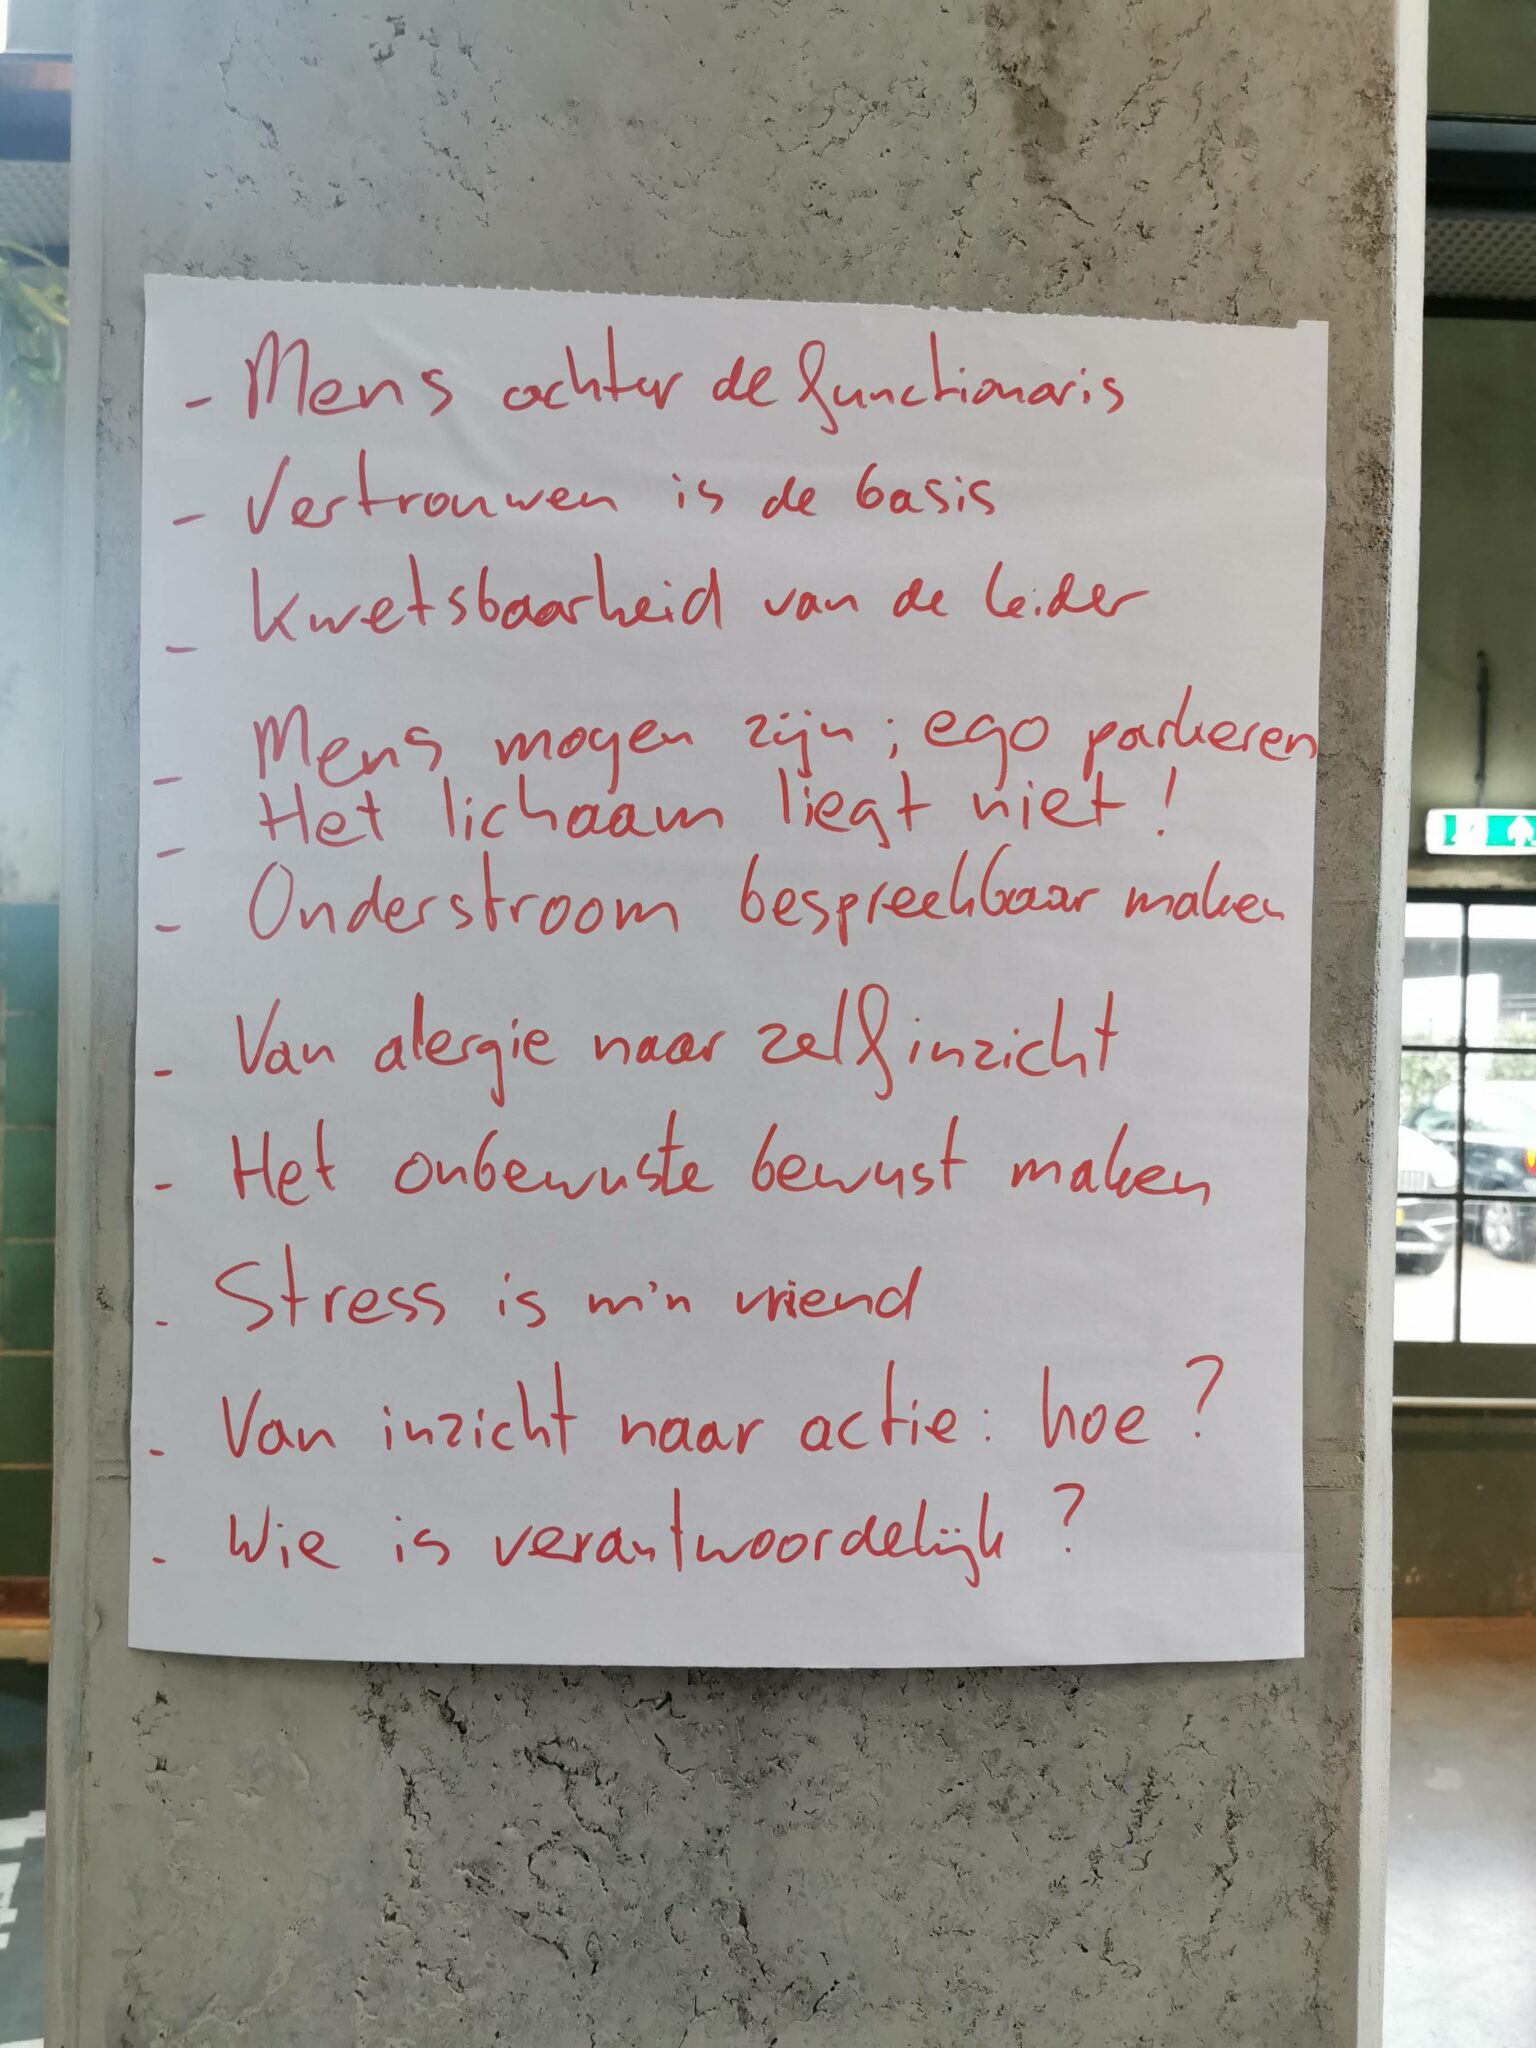 - Mens achter de functionaris
- Vertrouwen is de basis
- Kwetsbaarheid van de leider
- Mens mogen zijn; ego parkeren
- Het lichaam liegt niet!
- Onderstroom bespreekbaar maken
- Van alergie naar zelfinzicht
- Het onbewuste bewust maken
- Stress is m'n vriend
- Van inzicht naar actie: hoe?
- Wie is verantwoordelijk?